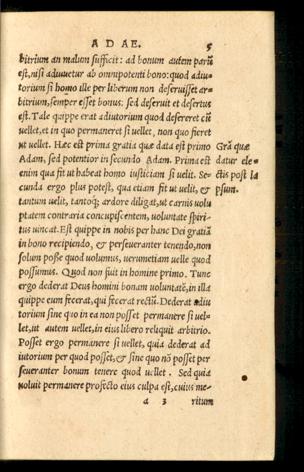 A D A E. 5
bitrium an malum sufficit: ad bonum autem parū
est, nisi adiuuetur ab omnipotenti bono: quod adiu-
torium si homo ille per liberum non deseruisset ar-
bitrium, semper esset bonus: sed deseruit et desertus
est. Tale quippe erat adiutorium quod desereret cū
uellet, et in quo permaneret si uellet, non quo fieret
ut uellet. Hæc est prima gratia quæ data est primo
Adam, sed potentior in secundo Adam. Prima est
enim qua fit ut habeat homo iusticiam si uelit. Se-
cunda ergo plus potest, qua etiam fit ut uelit, &
tantum uelit, tantoq; ardore diligat, ut carnis uolu
ptatem contraria concupiscentem, uoluntate spiri-
tus uincat. Est quippe in nobis per hanc Dei gratiā
in bono recipiendo, & perseueranter tenendo, non
solum posse quod uolumus, uerumetiam uelle quod
possumus. Quod non fuit in homine primo. Tunc
ergo dederat Deus homini bonam uoluntatē, in illa
quippe eum fecerat, qui fecerat rectū. Dederat adiu
torium sine quo in ea non posset permanere si uel-
let, ut autem uellet, in eius libero reliquit arbitrio.
Posset ergo permanere si uellet, quia dederat ad
iutorium per quod posset, & sine quo nō posset per
seueranter bonum tenere quod uellet. Sed quia
noluit permanere profecto eius culpa est, cuius me-
a 3 ritum
Grā quæ
datur ele-
ctis post la
psum.